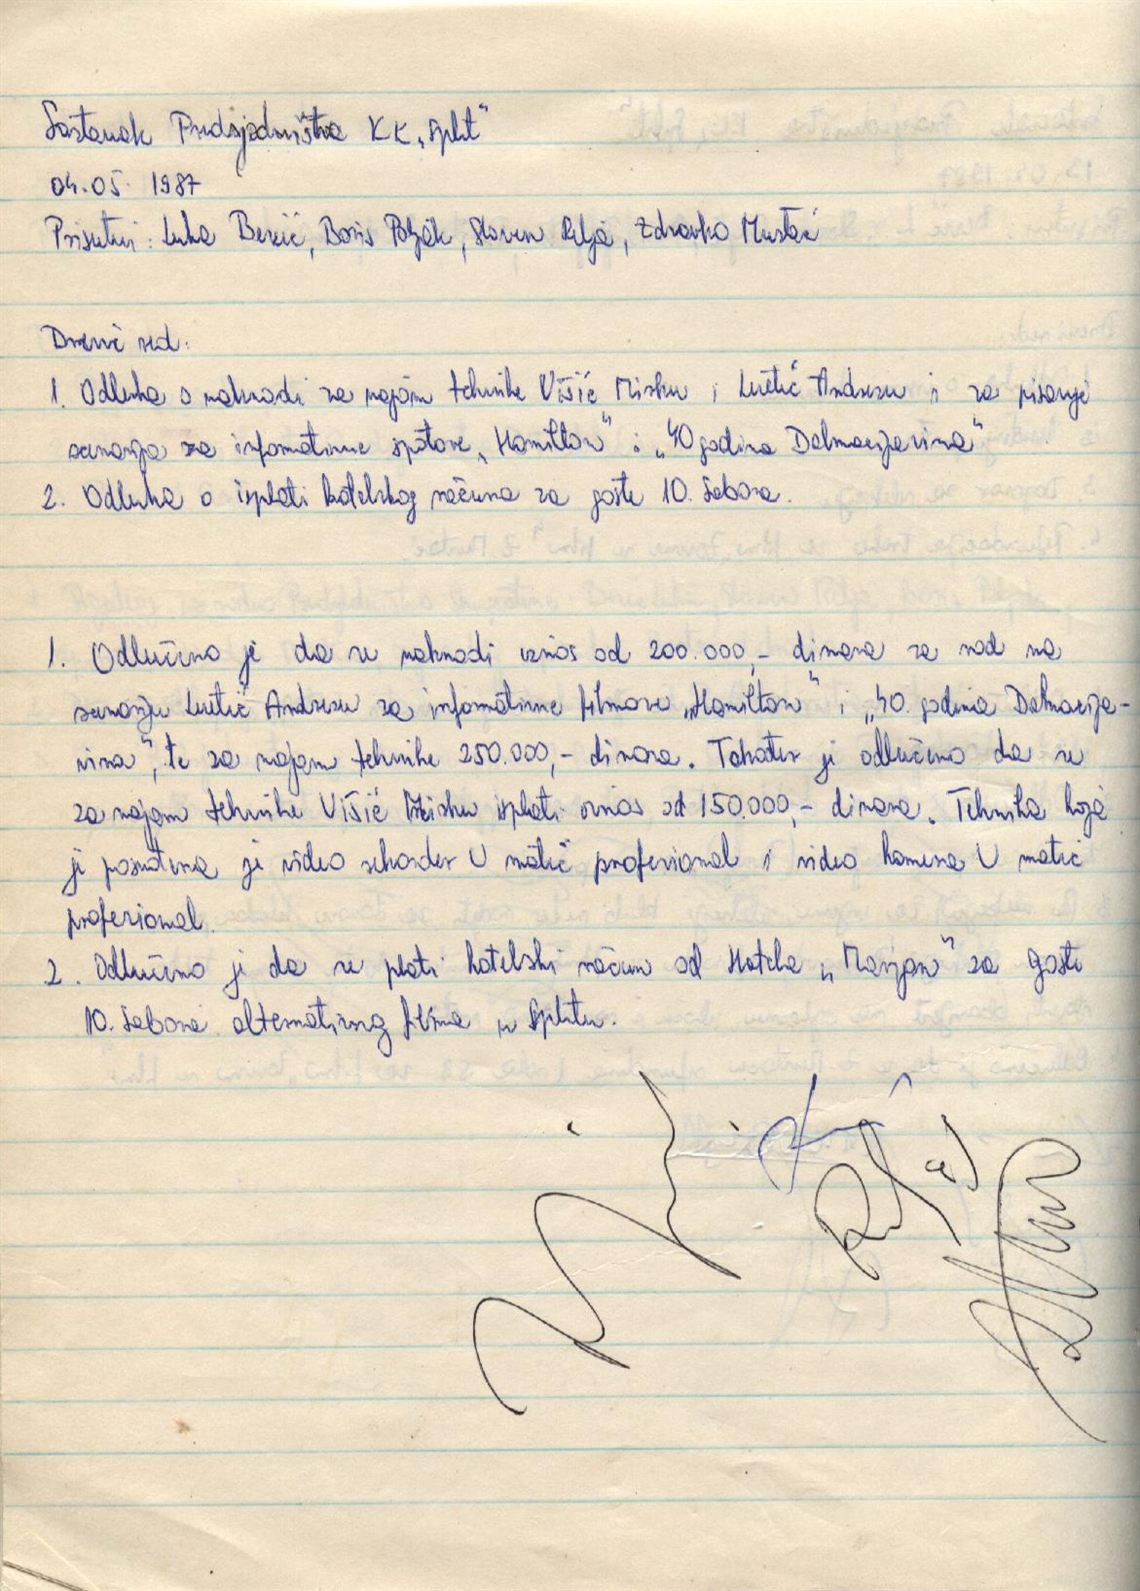 Sastanak Predsjedništva KK „Split"
04.05. 1987
Prisutni: Luka Bezić, Boris Poljak, Slaven Relja, Zdravko Mustać
Dnevni red:
1. Odluka o naknadi za najam tehnike Višić Mirku i Luetić Andrezu i za pisanje
scenarija za informativne spotove „Hamilton" i „40 godina Dalmacijavina"
2. Odluka o isplati hotelskog računa za goste 10. Sabora.
1. Odlučeno je da se naknadi iznos od 200.000,- dinara za rad na
scenariju Luetić Andrezu za informativne filmove „Hamilton" i „40. godina Dalmacija-
vina", te za najam tehnike 250.000,- dinara. Također je odlučeno da se
za najam tehnike Višić Mirku isplati iznos od 150.000,- dinara. Tehnika koja
je posuđena je video rekorder U matic profesional i video kamera U matic
profesional.
2. Odlučeno je da se plati hotelski račun od Hotela „Marjan" za goste
10. Sabora alternativnog filma u Splitu.